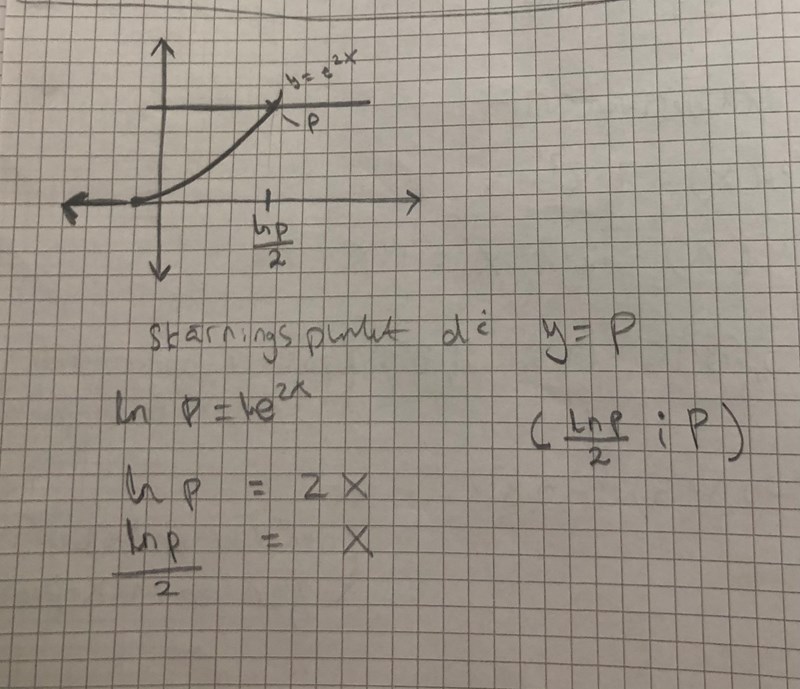 y = e^2x
p
ln p / 2
skärningspunkt då y = P
ln p = ln e^2x
( ln p / 2 ; P )
ln p = 2x
ln p / 2 = x